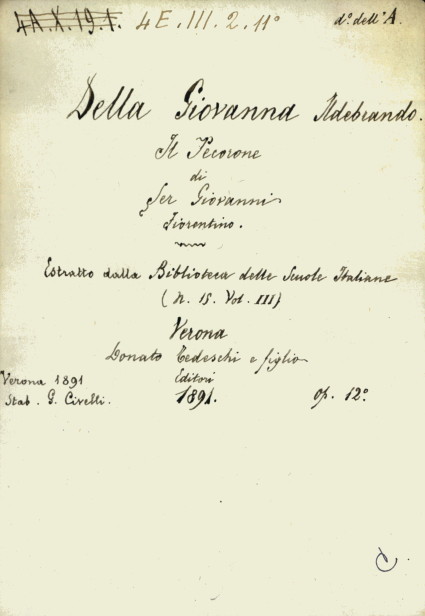 4A.X.19.1. 4 E. III. 2. 11° d.° dell'A.
Della Giovanna Ildebrando.
Il Pecorone
di
Ser Giovanni
Fiorentino.
Estratto dalla Biblioteca delle Scuole Italiane
(N. 15. Vol. III)
Verona
Donato Tedeschi e figlio
Editori
Verona 1891
Stab. G. Civelli.
1891. op. 12°.